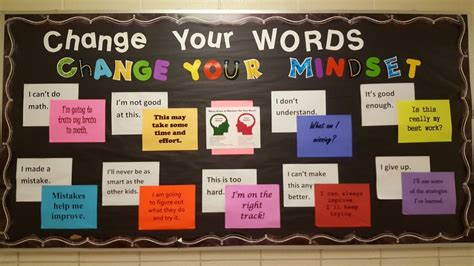 Change Your WORDS
CHANGE YOUR MINDSET
I can't do
math.
I'm going to
train my brain
to math.
I'm not good
at this.
This may
take some
time and
effort.
I don't
understand.
What am I
missing?
It's good
enough.
Is this
really my
best work?
I made a
mistake.
Mistakes
help me
improve.
I'll never be as
smart as the
other kids.
I am going
to figure out
what they do
and try it.
This is too
hard.
I'm on the
right track!
I can't make
this any
better.
I can always
improve.
I'll keep
trying.
I give up.
I'll use some
of the strategies
I've learned.